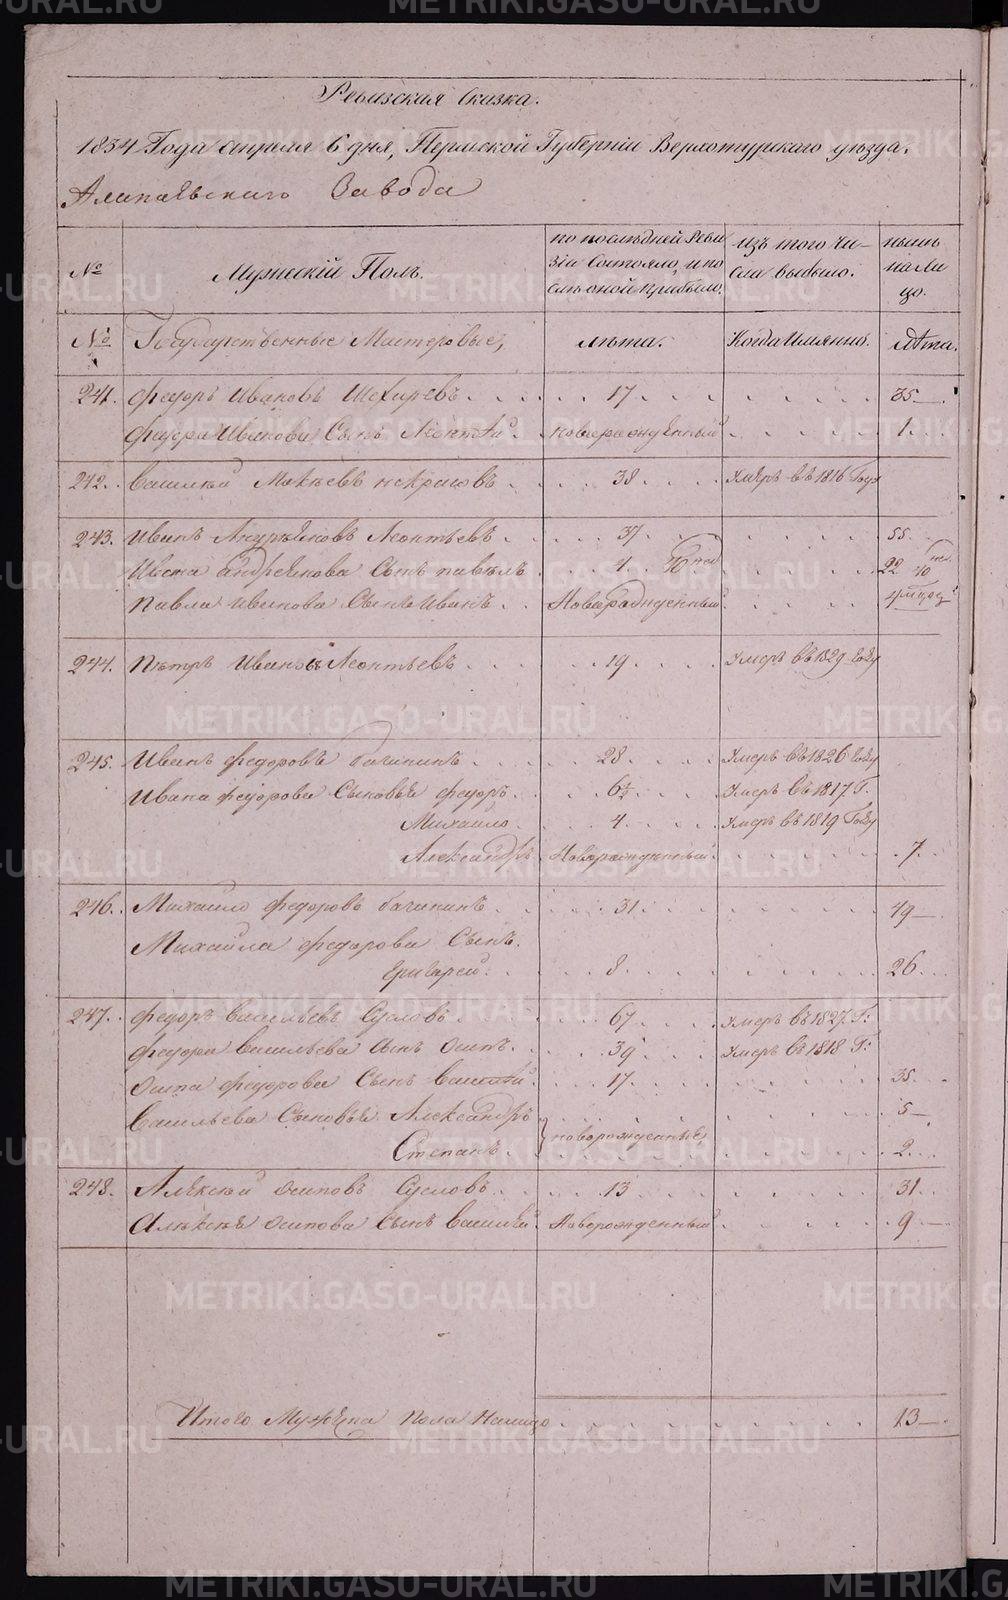 Ревизская Сказка.
1834 Года апреля 6 дня, Пермской Губерніи Верхотурскаго уезда.
Алапаевскаго Завода
№ Мужескій Полъ. по последней Ревизіи Состояло, и после оной прибыло. Изъ того числа выбыло. ныне на лицо.
№ Государственные Мастеровые, лѣта. Когда Имянно. лѣта.
241. Федоръ Ивановъ 17 35
Федора Иванова Сынъ Леонтей новорожденный 1
242. Василей Некрасовъ 38 Умеръ въ 1816 Году
243. Иванъ Леонтьевъ 37 55
Ивана Андреянова Сынъ павелъ 4 22
Павла Иванова Сынъ Иванъ Новорожденный
244. Петръ Ивановъ Леонтьевъ 19 Умеръ въ 1829 Году
245. Иванъ Федоровъ бачининъ 28 Умеръ въ 1826 Году
Ивана Федорова Сыновья федоръ 6½ Умеръ въ 1817 Г.
Михайло 4 Умеръ въ 1819 Году
Александръ Новорожденный 7
246. Михайло Федоровъ бачининъ 31 49
Михайла Федорова Сынъ
Григорей 8 26
247. Федоръ Васильевъ Сусловъ 67 Умеръ въ 1827 Г.
Федора Васильева Сынъ Осипъ 39 Умеръ въ 1818 Г.
Осипа Федорова Сынъ Василей 17 35
Васильева Сыновья Александръ 5
Степанъ новорожденные 2
248. Алексей Осиповъ Сусловъ 13 31
Алексея Осипова Сынъ Василей Новорожденный 9
Итого Мужеска пола Налицо 13